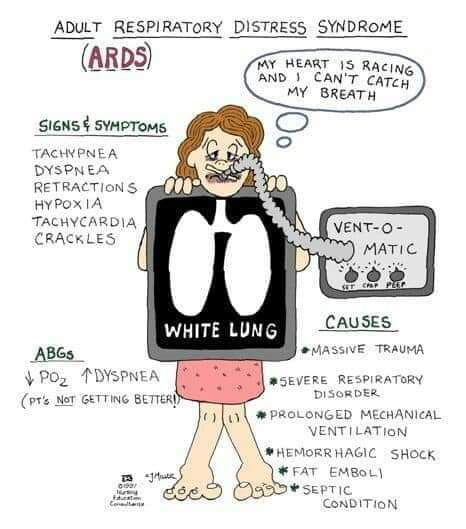 ADULT RESPIRATORY DISTRESS SYNDROME
(ARDS)
MY HEART IS RACING
AND I CAN'T CATCH
MY BREATH
SIGNS & SYMPTOMS
TACHYPNEA
DYSPNEA
RETRACTIONS
HYPOXIA
TACHYCARDIA
CRACKLES
VENT-O-
MATIC
SET CPAP PEEP
WHITE LUNG
ABGs
↓ PO₂ ↑DYSPNEA
(PT'S NOT GETTING BETTER!)
CAUSES
*MASSIVE TRAUMA
*SEVERE RESPIRATORY
DISORDER
*PROLONGED MECHANICAL
VENTILATION
*HEMORRHAGIC SHOCK
*FAT EMBOLI
*SEPTIC
CONDITION
©1997
Nursing
Education
Consultants